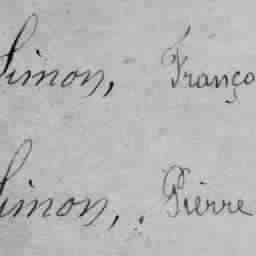 Simon, Franço
Simon, . Pierre